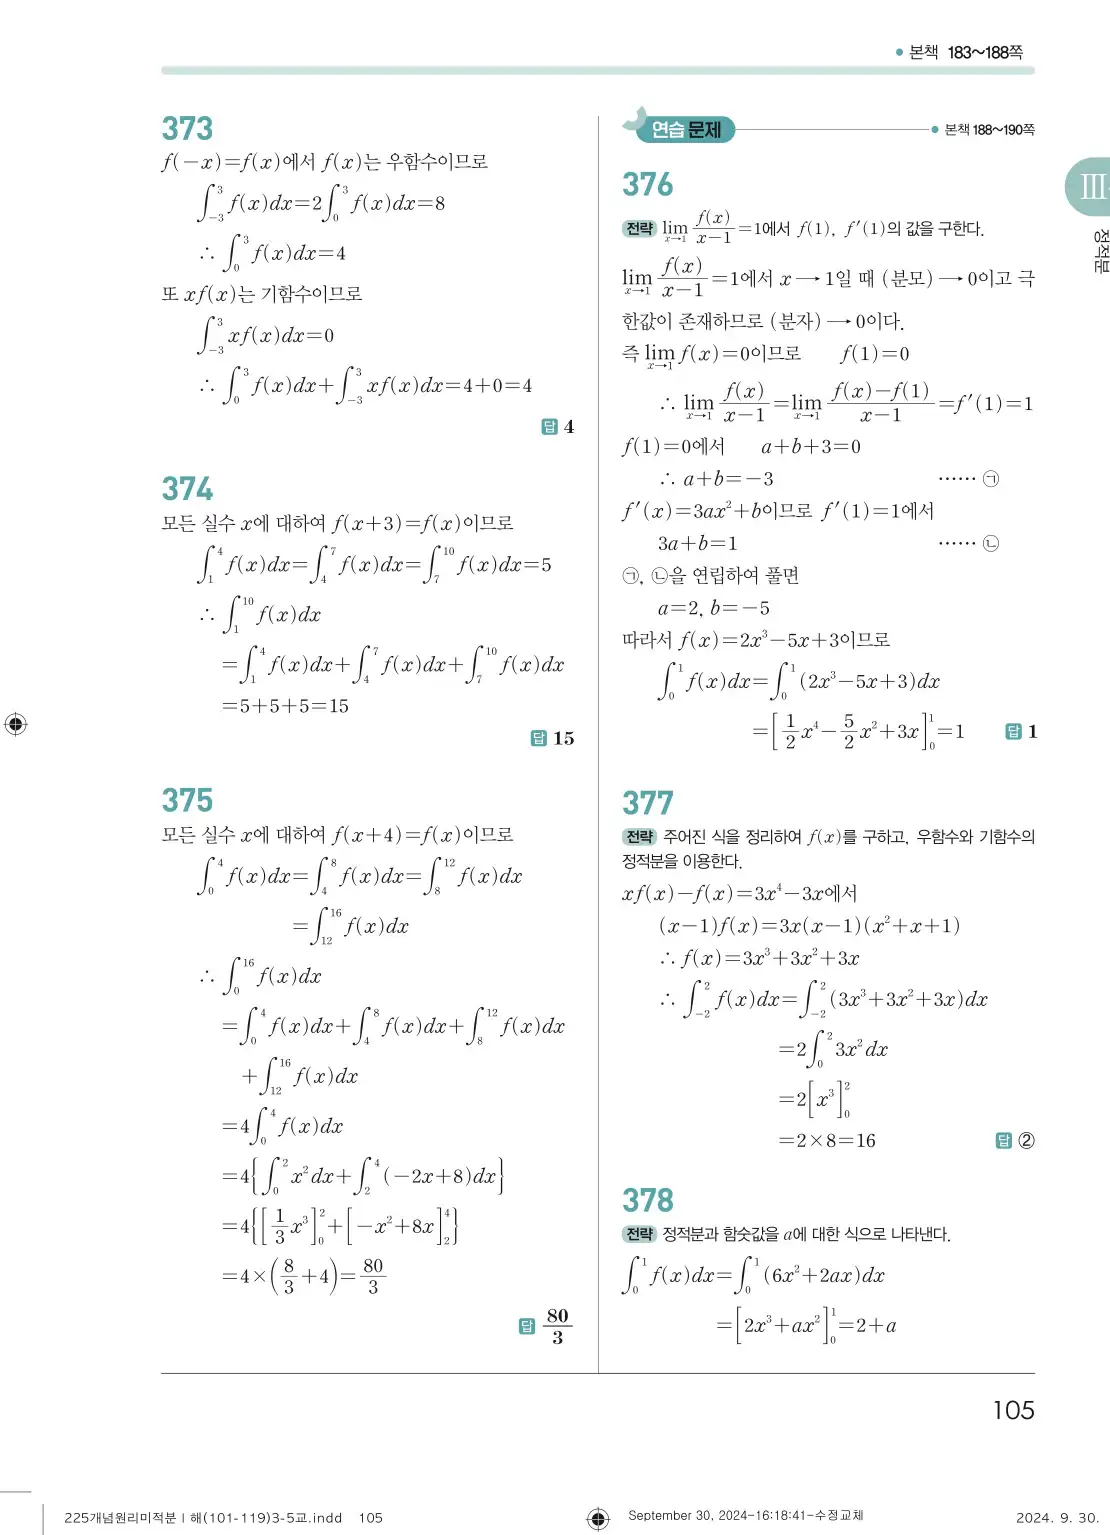 ● 본책 183~188쪽
373
f(-x)=f(x)에서 f(x)는 우함수이므로
∫_{-3}^{3} f(x)dx=2∫_{0}^{3} f(x)dx=8
∴ ∫_{0}^{3} f(x)dx=4
또 xf(x)는 기함수이므로
∫_{-3}^{3} xf(x)dx=0
∴ ∫_{0}^{3} f(x)dx+∫_{-3}^{3} xf(x)dx=4+0=4
답 4
374
모든 실수 x에 대하여 f(x+3)=f(x)이므로
∫_{1}^{4} f(x)dx=∫_{4}^{7} f(x)dx=∫_{7}^{10} f(x)dx=5
∴ ∫_{1}^{10} f(x)dx
=∫_{1}^{4} f(x)dx+∫_{4}^{7} f(x)dx+∫_{7}^{10} f(x)dx
=5+5+5=15
답 15
375
모든 실수 x에 대하여 f(x+4)=f(x)이므로
∫_{0}^{4} f(x)dx=∫_{4}^{8} f(x)dx=∫_{8}^{12} f(x)dx
=∫_{12}^{16} f(x)dx
∴ ∫_{0}^{16} f(x)dx
=∫_{0}^{4} f(x)dx+∫_{4}^{8} f(x)dx+∫_{8}^{12} f(x)dx
+∫_{12}^{16} f(x)dx
=4∫_{0}^{4} f(x)dx
=4{∫_{0}^{2} x²dx+∫_{2}^{4} (-2x+8)dx}
=4{[1/3 x³]_{0}^{2}+[-x²+8x]_{2}^{4}}
=4×(8/3+4)=80/3
답 80/3
연습 문제
● 본책 188~190쪽
376
전략 lim_{x→1} f(x)/(x-1)=1에서 f(1), f′(1)의 값을 구한다.
lim_{x→1} f(x)/(x-1)=1에서 x ⟶ 1일 때 (분모) ⟶ 0이고 극
한값이 존재하므로 (분자) ⟶ 0이다.
즉 lim_{x→1} f(x)=0이므로 f(1)=0
∴ lim_{x→1} f(x)/(x-1)=lim_{x→1} (f(x)-f(1))/(x-1)=f′(1)=1
f(1)=0에서 a+b+3=0
∴ a+b=-3 …… ㉠
f′(x)=3ax²+b이므로 f′(1)=1에서
3a+b=1 …… ㉡
㉠, ㉡을 연립하여 풀면
a=2, b=-5
따라서 f(x)=2x³-5x+3이므로
∫_{0}^{1} f(x)dx=∫_{0}^{1} (2x³-5x+3)dx
=[1/2 x⁴-5/2 x²+3x]_{0}^{1}=1 답 1
377
전략 주어진 식을 정리하여 f(x)를 구하고, 우함수와 기함수의
정적분을 이용한다.
xf(x)-f(x)=3x⁴-3x에서
(x-1)f(x)=3x(x-1)(x²+x+1)
∴ f(x)=3x³+3x²+3x
∴ ∫_{-2}^{2} f(x)dx=∫_{-2}^{2} (3x³+3x²+3x)dx
=2∫_{0}^{2} 3x²dx
=2[x³]_{0}^{2}
=2×8=16 답 ②
378
전략 정적분과 함숫값을 a에 대한 식으로 나타낸다.
∫_{0}^{1} f(x)dx=∫_{0}^{1} (6x²+2ax)dx
=[2x³+ax²]_{0}^{1}=2+a
Ⅲ
정적분
105
225개념원리미적분Ⅰ해(101-119)3-5교.indd 105
September 30, 2024-16:18:41-수정교체
2024. 9. 30.